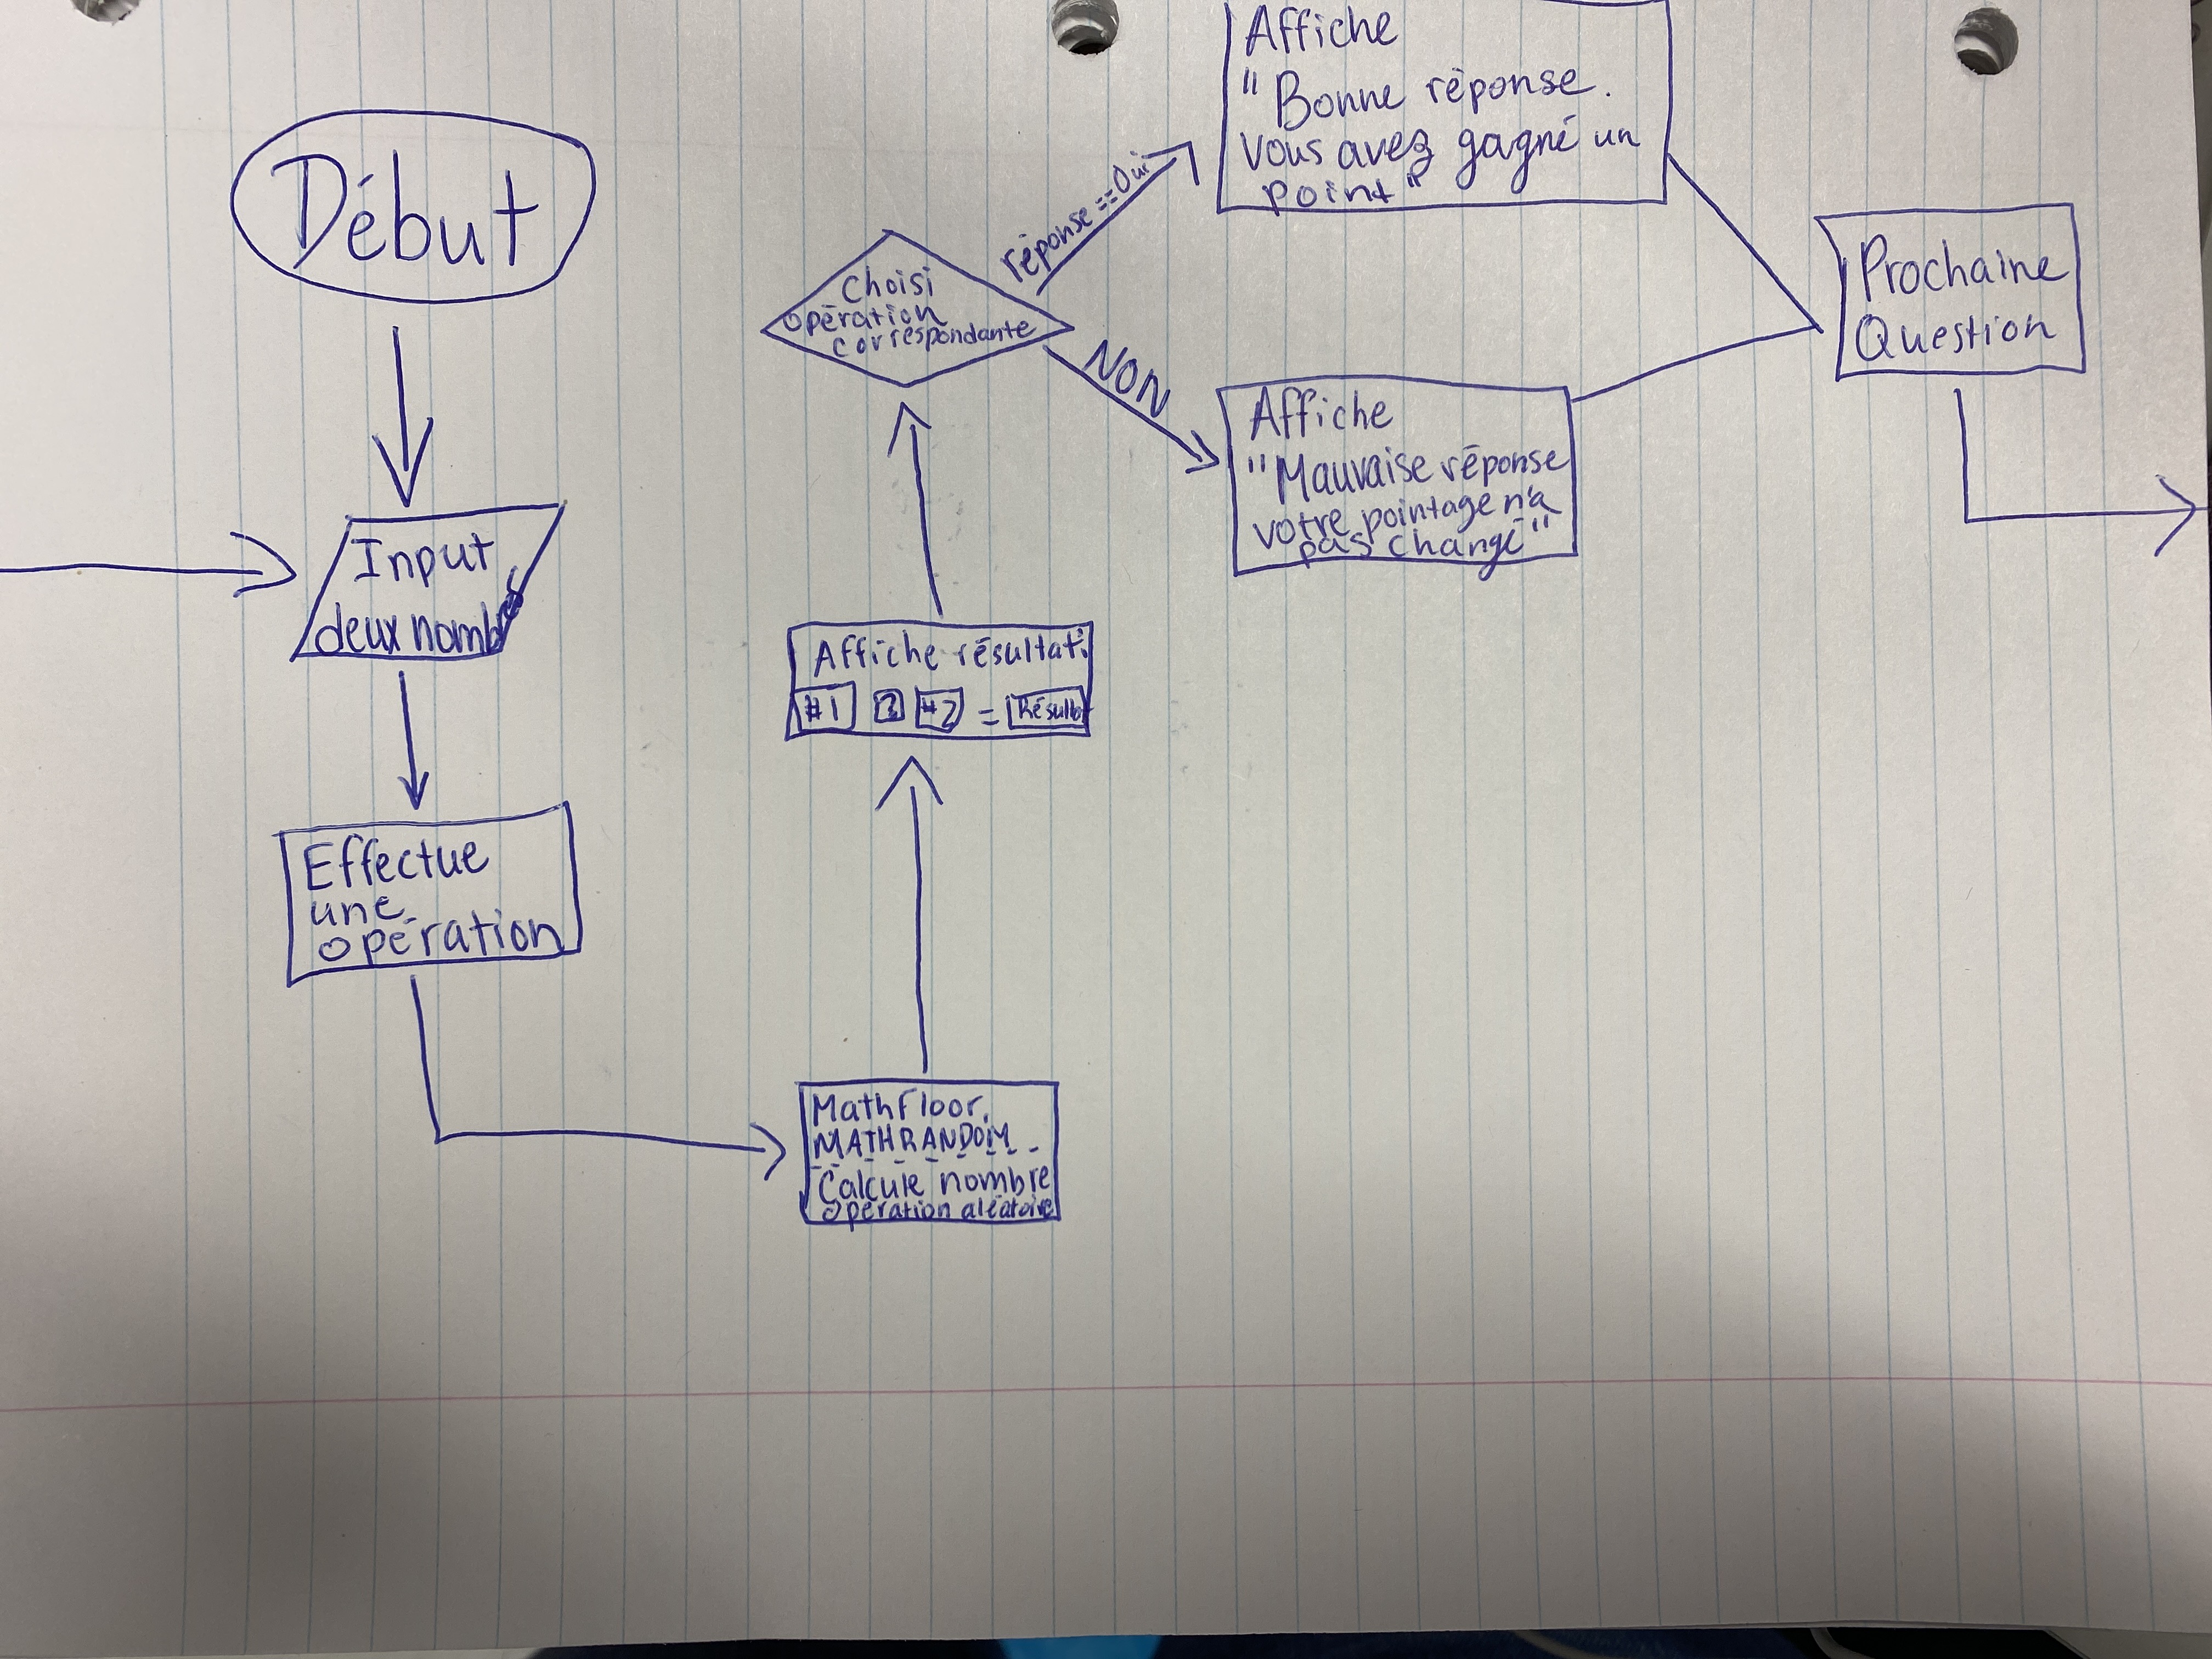 Début
Input
deux nombres
Effectue
une
opération
Math floor
MATH RANDOM -
Calcule nombre
opération aléatoire
Affiche résultat:
#1 ? #2 = Résultat
Choisi
opération
correspondante
réponse == Oui
Non
Affiche
"Bonne réponse.
Vous avez gagné un
point"
Affiche
"Mauvaise réponse
votre pointage n'a
pas changé"
Prochaine
Question